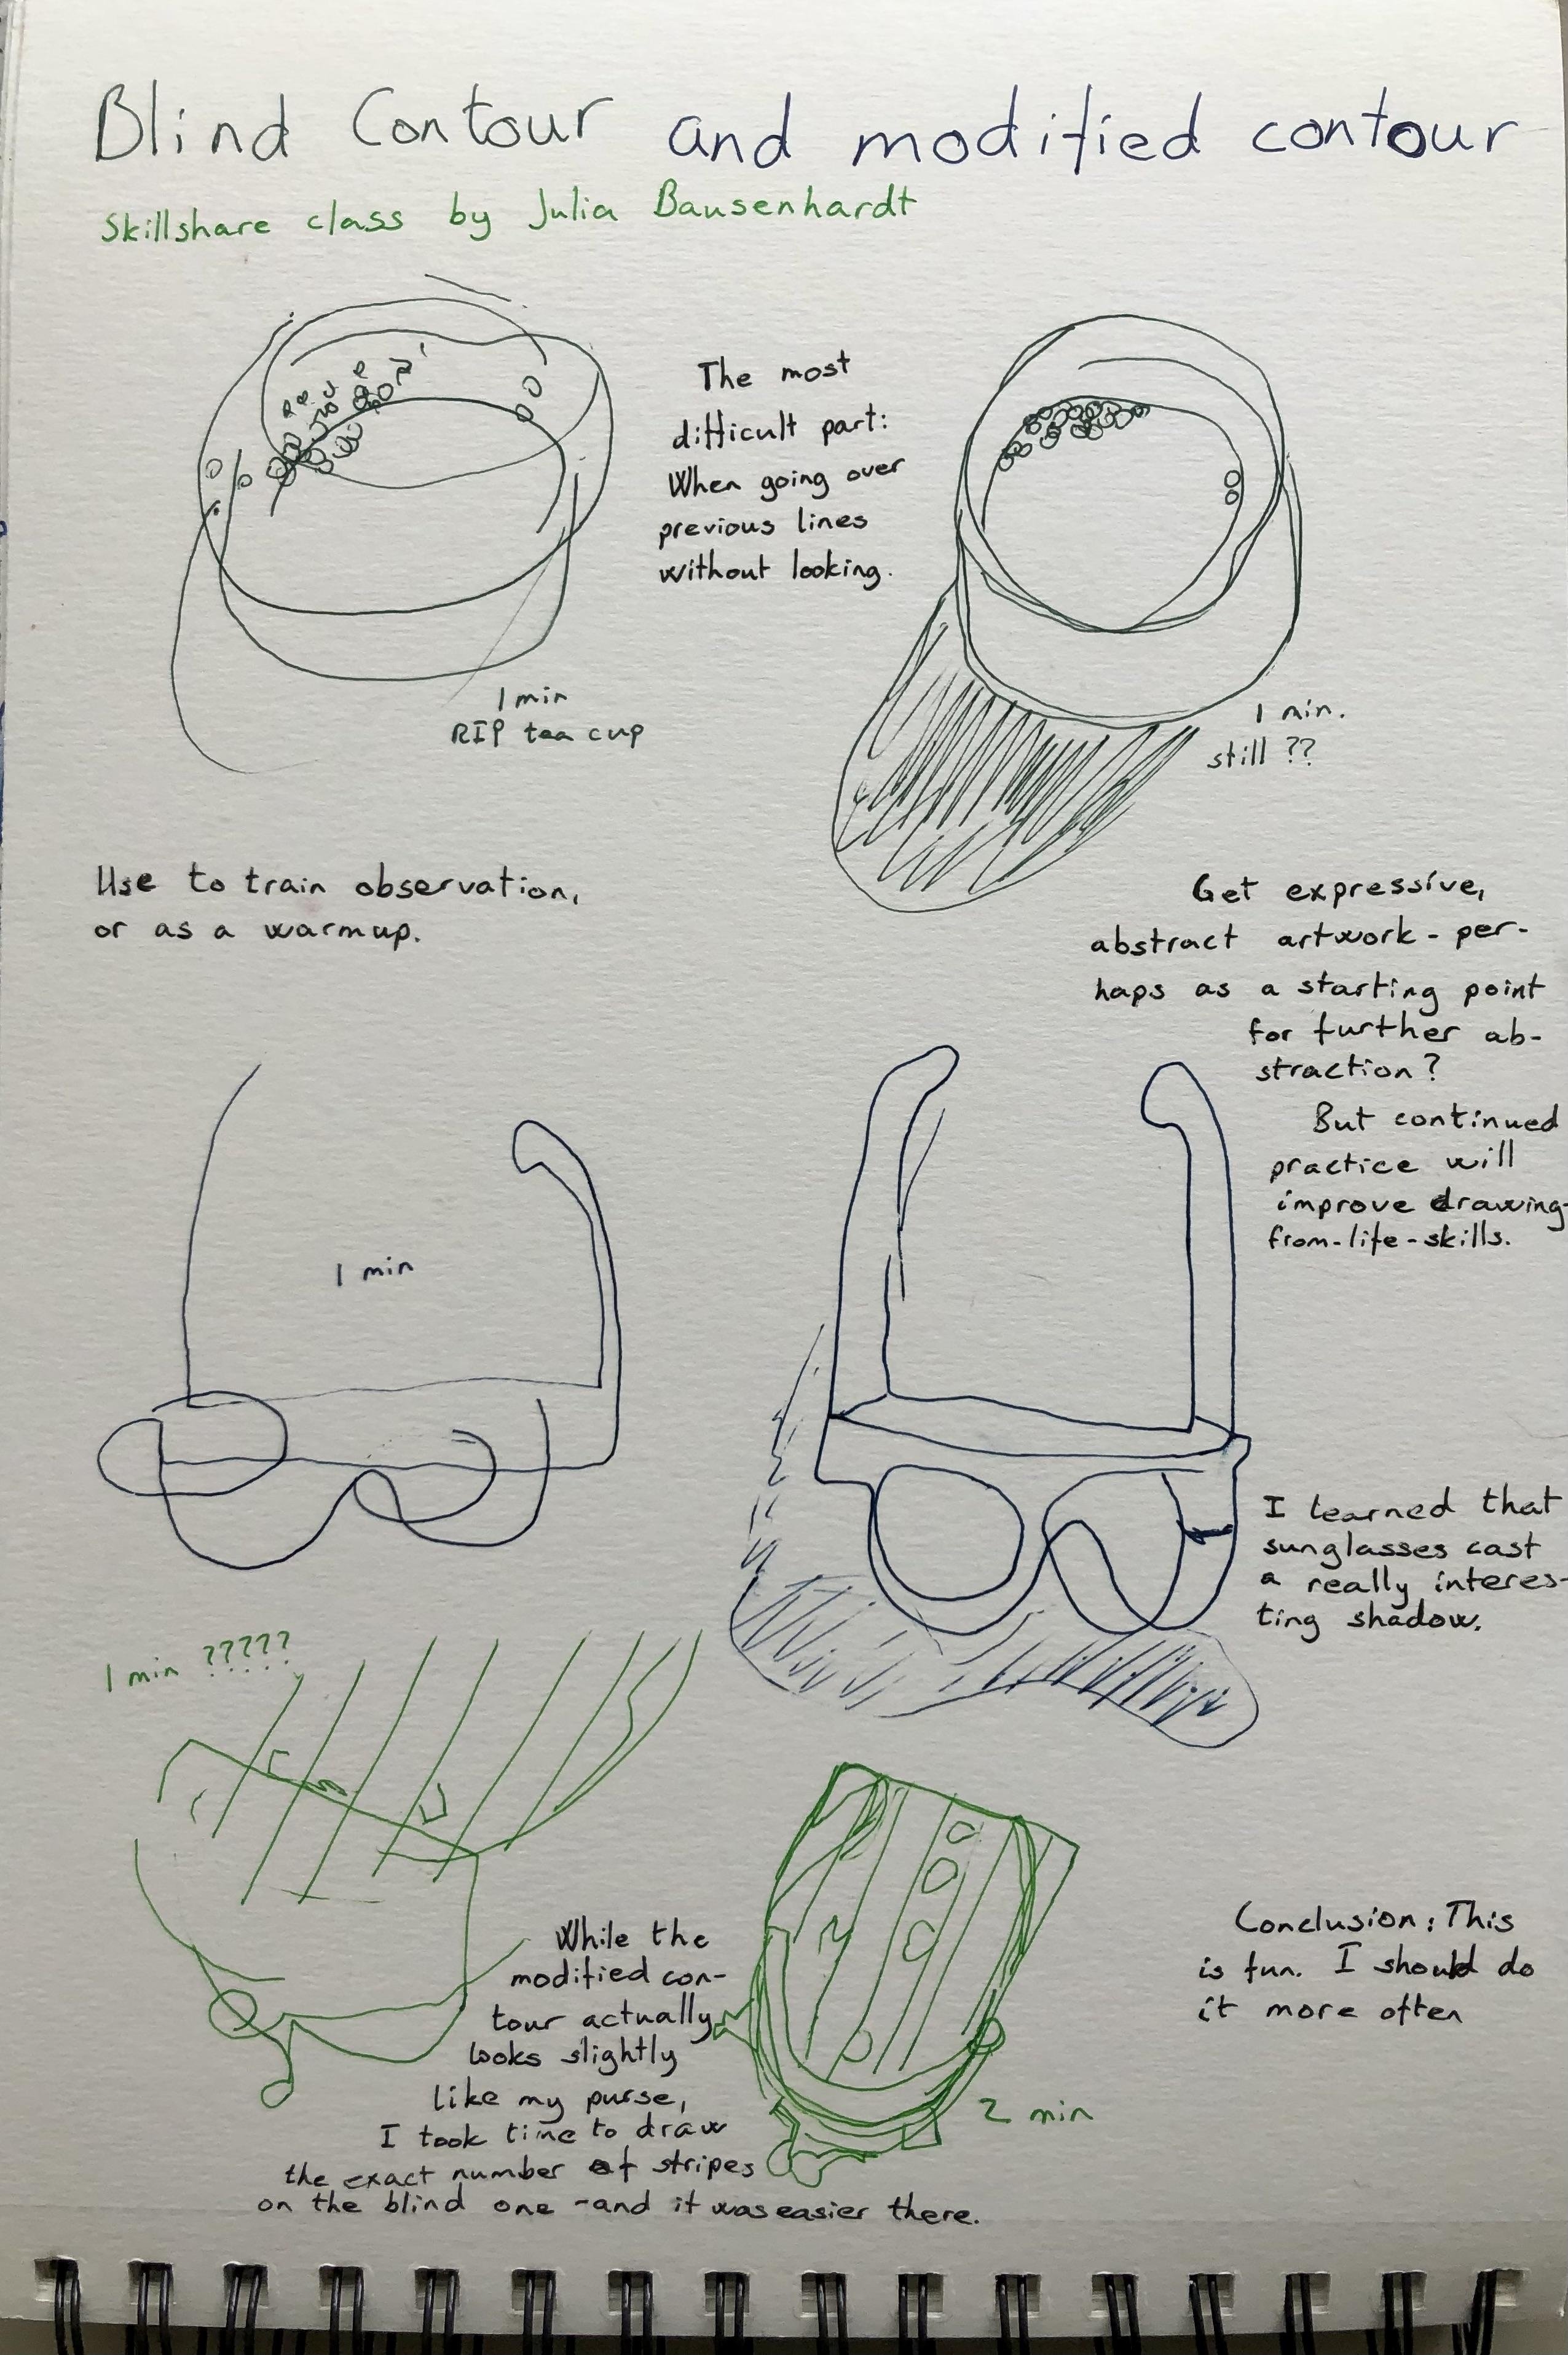 Blind Contour and modified contour
Skillshare class by Julia Bausenhardt
The most
difficult part:
When going over
previous lines
without looking.
1 min
RIP tea cup
1 min.
still ??
Use to train observation,
or as a warmup.
Get expressive,
abstract artwork - per-
haps as a starting point
for further ab-
straction?
But continued
practice will
improve drawing-
from-life-skills.
1 min
I learned that
sunglasses cast
a really interes-
ting shadow.
1 min ?????
While the
modified con-
tour actually
looks slightly
like my purse,
I took time to draw
the exact number of stripes
on the blind one - and it was easier there.
2 min
Conclusion: This
is fun. I should do
it more often